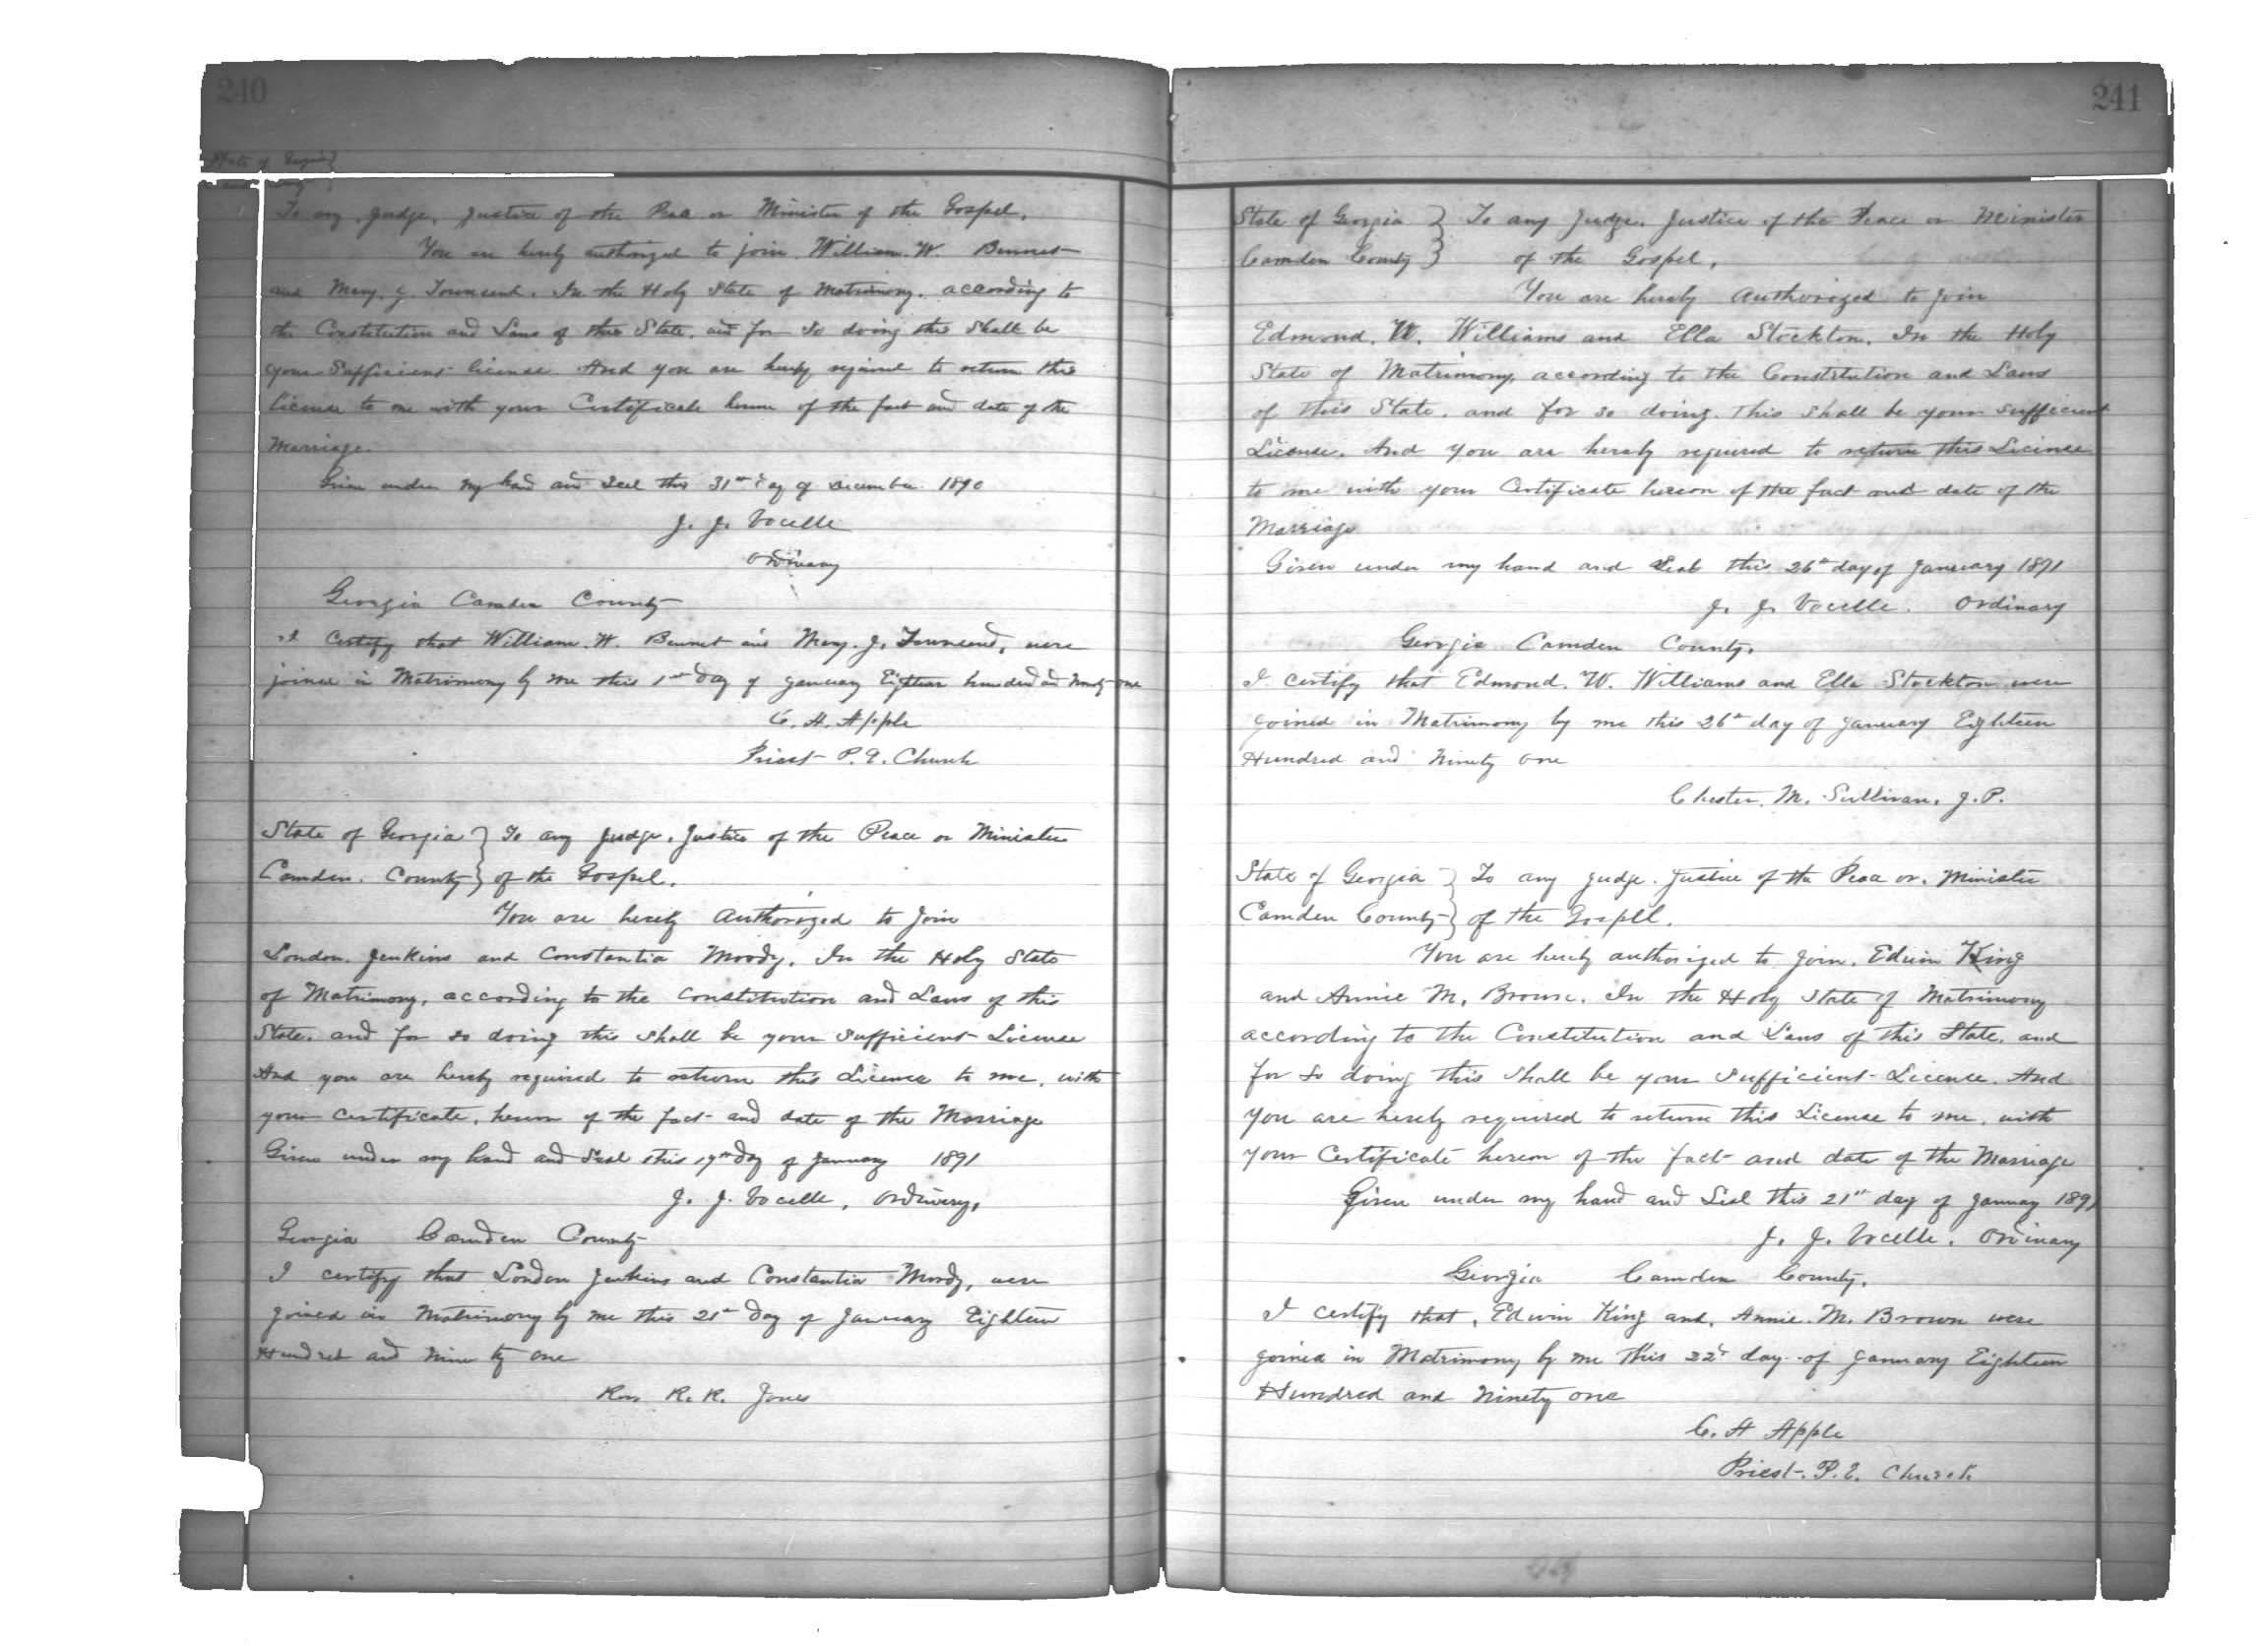 240
State of Georgia
To any Judge, Justice of the Peace or Minister of the Gospel.
You are hereby authorized to join William. W. Bennet
and Mary. J. Townsend. In the Holy State of Matrimony. according to
the Constitution and Laws of this State. and for so doing this shall be
your Sufficient license And you are hereby required to return this
license to me with your Certificate hereon of the fact and date of the
Marriage.
Given under my hand and Seal this 31st day of December 1890
J. J. Vocelle
Ordinary
Georgia Camden County
I Certify that William. W. Bennet and Mary. J. Townsend, were
joined in Matrimony by me this 1st day of January Eighteen hundred and Ninety one
C. H. Apple
Priest P. E. Church
State of Georgia } To any Judge. Justice of the Peace or Minister
Camden. County } of the Gospel.
You are hereby Authorized to Join
London. Jenkins and Constantia Moody. In the Holy State
of Matrimony, according to the Constitution and Laws of this
State. and for so doing this shall be your Sufficient License
And you are hereby required to return this License to me, with
your Certificate, hereon of the fact and date of the Marriage
Given under my hand and Seal this 19th day of January 1891
J. J. Vocelle, Ordinary,
Georgia Camden County
I certify that London Jenkins and Constantia Moody, were
joined in Matrimony by me this 21st day of January Eighteen
Hundred and Nine ty one
Rev R. R. Jones
241
State of Georgia } To any Judge. Justice of the Peace or Minister
Camden County } of the Gospel,
You are hereby Authorized to Join
Edmond. W. Williams and Ella Stockton. In the Holy
State of Matrimony, according to the Constitution and Laws
of this State. and for so doing. This shall be your sufficient
License. And you are hereby required to return this License
to me with your Certificate hereon of the fact and date of the
Marriage
Given under my hand and Seal this 26th day of January 1891
J. J. Vocelle. Ordinary
Georgia Camden County.
I certify that Edmond. W. Williams and Ella Stockton were
Joined in Matrimony by me this 26th day of January Eighteen
Hundred and Ninety One
Chester. M. Sullivan. J.P.
State of Georgia } To any Judge. Justice of the Peace or. Minister
Camden County } of the Gospel.
You are hereby authorized to join. Edwin King
and Annie M. Brown. In the Holy State of Matrimony
according to the Constitution and Laws of this State. and
for so doing this shall be your Sufficient License. And
you are hereby required to return this License to me, with
your Certificate hereon of the fact and date of the Marriage
Given under my hand and Seal this 21st day of January 1891
J. J. Vocelle. Ordinary
Georgia Camden County.
I certify that, Edwin King and, Annie. M. Brown were
joined in Matrimony by me this 22d day of January Eighteen
Hundred and Ninety one
C. H Apple
Priest. P. E. Church